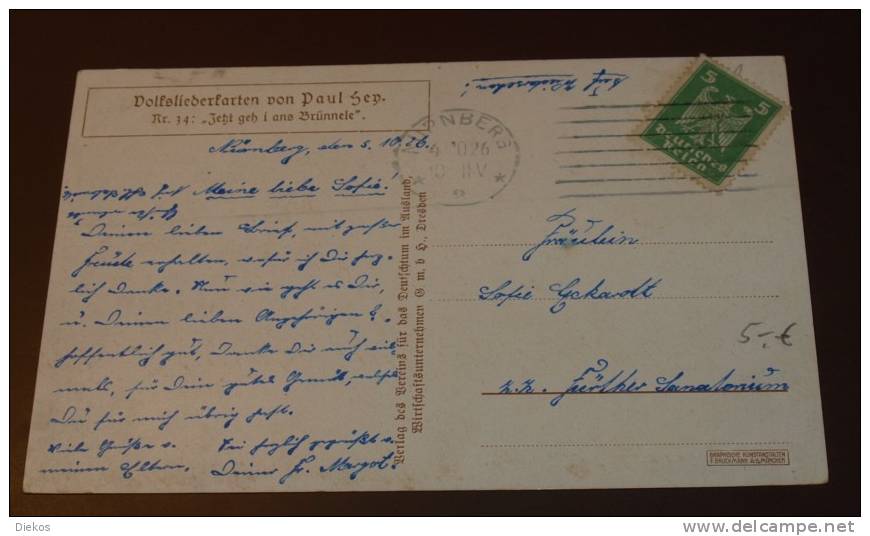 Volksliederkarten von Paul Hey.
Nr. 34: „Jetzt geh i ans Brünnele“.
Nürnberg, den 5. 10.26.
Meine liebe Sofie!
Deinen lieben Brief, mit großer
Freude erhalten, wofür ich Dir herz-
lich danke. Nun wie geht es Dir,
u. Deinen lieben Angehörigen?
hoffentlich gut, Danke Dir noch viel-
mals, für Dein gutes Gemüt, welches
Du für mich übrig hast.
Viele Grüße v. Sei herzlich gegrüßt v.
meinen Eltern. Deiner Fr. Margot.
Auf Wiedersehen!
Verlag des Vereins für das Deutschtum im Ausland,
Wirtschaftsunternehmen G. m. b. H., Dresden
NÜRNBERG
5 5
Deutsches
Reich
Fräulein
Sofie Eckardt
z.Z. Fürther Sanatorium
5,-€
GRAPHISCHE KUNSTANSTALTEN
F. BRUCKMANN A.G. MÜNCHEN
Diekos
delcampe.net